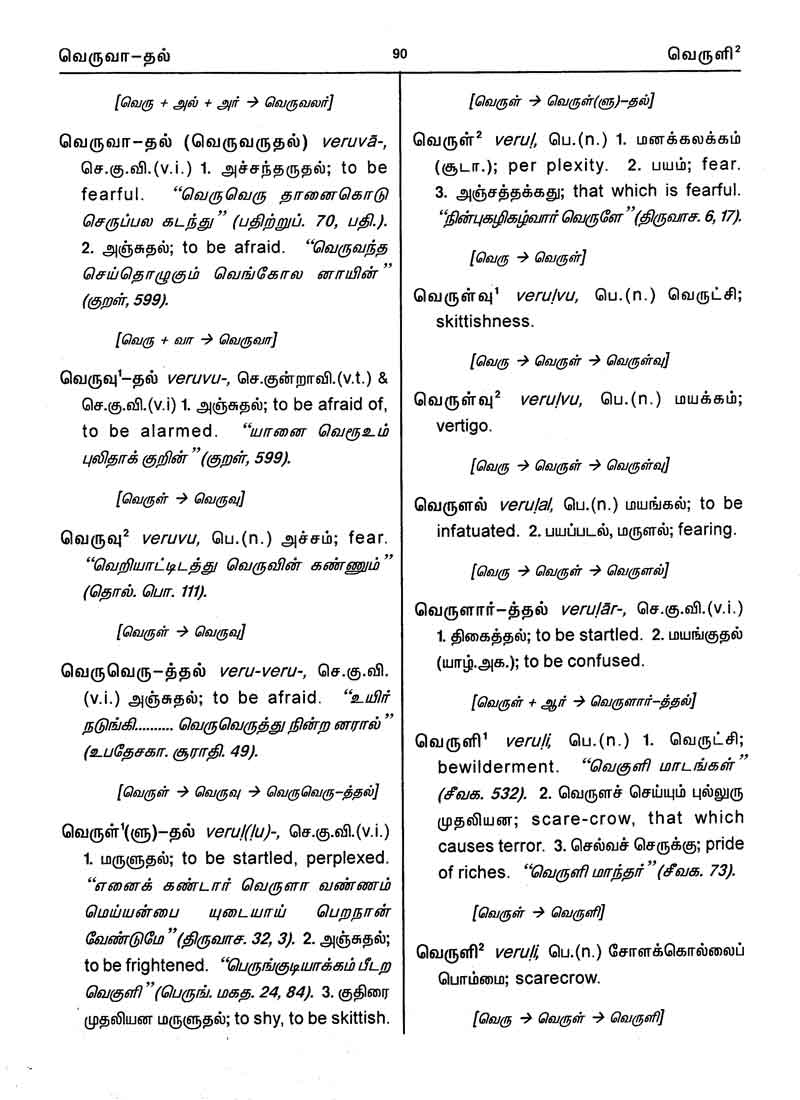 வெருவா–தல் 90 வெருளி²
[வெரு + அல் + அர் → வெருவலர்]
வெருவா–தல் (வெருவருதல்) veruvā-,
செ.கு.வி.(v.i.) 1. அச்சந்தருதல்; to be
fearful. “வெருவெரு தானைகொடு
செருப்பல கடந்து” (பதிற்றுப். 70, பதி.).
2. அஞ்சுதல்; to be afraid. “வெருவந்த
செய்தொழுகும் வெங்கோல னாயின்”
(குறள், 599).
[வெரு + வா → வெருவா]
வெருவு¹–தல் veruvu-, செ.குன்றாவி.(v.t.) &
செ.கு.வி.(v.i) 1. அஞ்சுதல்; to be afraid of,
to be alarmed. “யானை வெரூஉம்
புலிதாக் குறின்” (குறள், 599).
[வெருள் → வெருவு]
வெருவு² veruvu, பெ.(n.) அச்சம்; fear.
“வெறியாட்டிடத்து வெருவின் கண்ணும்”
(தொல். பொ. 111).
[வெருள் → வெருவு]
வெருவெரு–த்தல் veru-veru-, செ.கு.வி.
(v.i.) அஞ்சுதல்; to be afraid. “உயிர்
நடுங்கி.......... வெருவெருத்து நின்ற னரால்”
(உபதேசகா. சூராதி. 49).
[வெருள் → வெருவு → வெருவெரு–த்தல்]
வெருள்¹(ளு)–தல் veruḷ(ḷu)-, செ.கு.வி.(v.i.)
1. மருளுதல்; to be startled, perplexed.
“எனைக் கண்டார் வெருளா வண்ணம்
மெய்யன்பை யுடையாய் பெறநான்
வேண்டுமே” (திருவாச. 32, 3). 2. அஞ்சுதல்;
to be frightened. “பெருங்குடியாக்கம் பீடற
வெகுளி” (பெருங். மகத. 24, 84). 3. குதிரை
முதலியன மருளுதல்; to shy, to be skittish.
[வெருள் → வெருள்(ளு)–தல்]
வெருள்² veruḷ, பெ.(n.) 1. மனக்கலக்கம்
(சூடா.); per plexity. 2. பயம்; fear.
3. அஞ்சத்தக்கது; that which is fearful.
“நின்புகழிகழ்வார் வெருளே” (திருவாச. 6, 17).
[வெரு → வெருள்]
வெருள்வு¹ veruḷvu, பெ.(n.) வெருட்சி;
skittishness.
[வெரு → வெருள் → வெருள்வு]
வெருள்வு² veruḷvu, பெ.(n.) மயக்கம்;
vertigo.
[வெரு → வெருள் → வெருள்வு]
வெருளல் veruḷal, பெ.(n.) மயங்கல்; to be
infatuated. 2. பயப்படல், மருளல்; fearing.
[வெரு → வெருள் → வெருளல்]
வெருளார்–த்தல் veruḷār-, செ.கு.வி.(v.i.)
1. திகைத்தல்; to be startled. 2. மயங்குதல்
(யாழ்.அக.); to be confused.
[வெருள் + ஆர் → வெருளார்–த்தல்]
வெருளி¹ veruḷi, பெ.(n.) 1. வெருட்சி;
bewilderment. “வெகுளி மாடங்கள்”
(சீவக. 532). 2. வெருளச் செய்யும் புல்லுரு
முதலியன; scare-crow, that which
causes terror. 3. செல்வச் செருக்கு; pride
of riches. “வெருளி மாந்தர்” (சீவக. 73).
[வெருள் → வெருளி]
வெருளி² veruḷi, பெ.(n.) சோளக்கொல்லைப்
பொம்மை; scarecrow.
[வெரு → வெருள் → வெருளி]